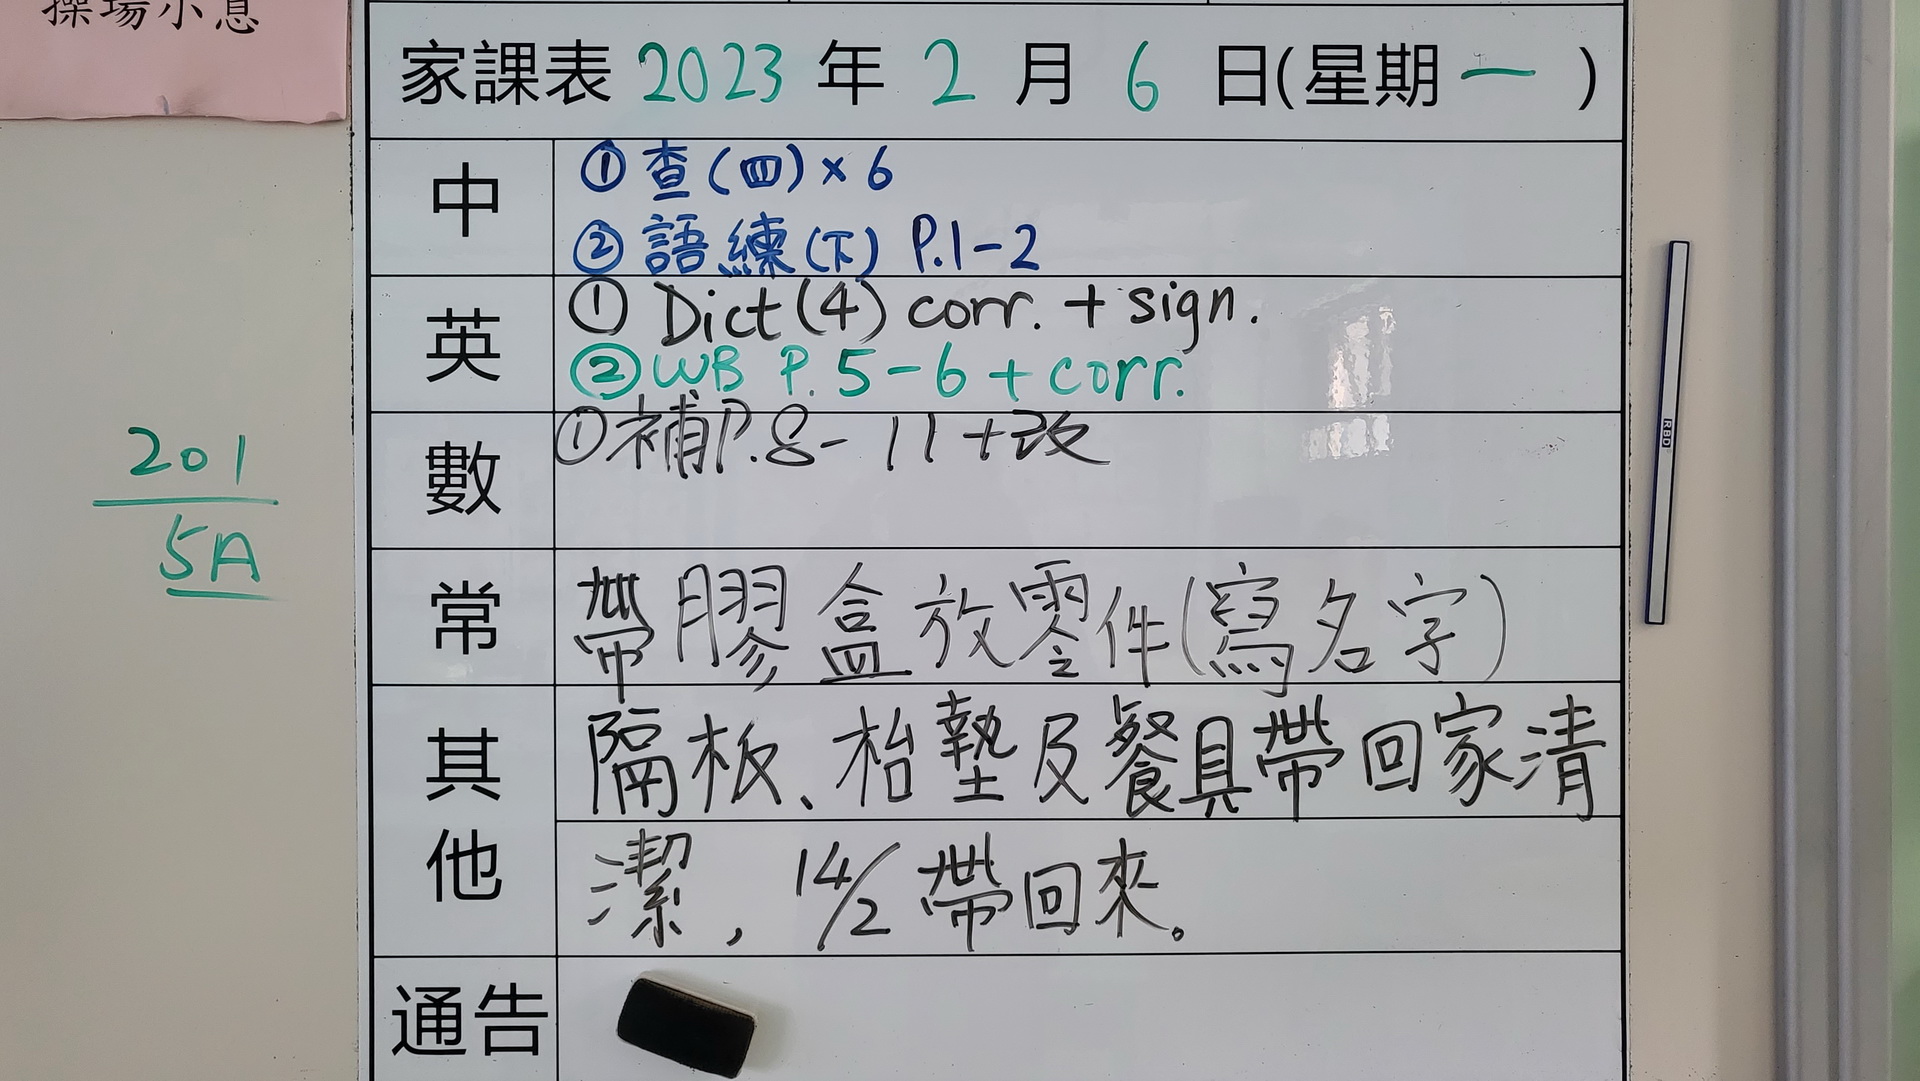 操場小息
家課表 2023 年 2 月 6 日(星期一)
中
① 查(四)×6
② 語練(下) P.1-2
英
① Dict(4) corr. + sign.
② WB P.5-6 + corr.
數
① 補P.8-11+改
常
帶膠盒放零件(寫名字)
其他
隔板、枱墊及餐具帶回家清
潔, 14/2 帶回來。
通告
201
5A
RBD